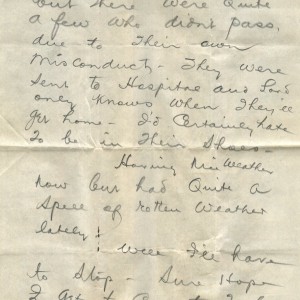 but there were Quite
a few who didn't pass,
due to Their own
Misconduct - They were
sent to Hospital and Lord
only Knows When They'll
get home - I'd Certainly hate
To be in Their Shoes -
Having Nice Weather
now but had Quite a
Spell of rotten Weather
lately!
Well I'll have
to Stop - Sure Hope
I get to